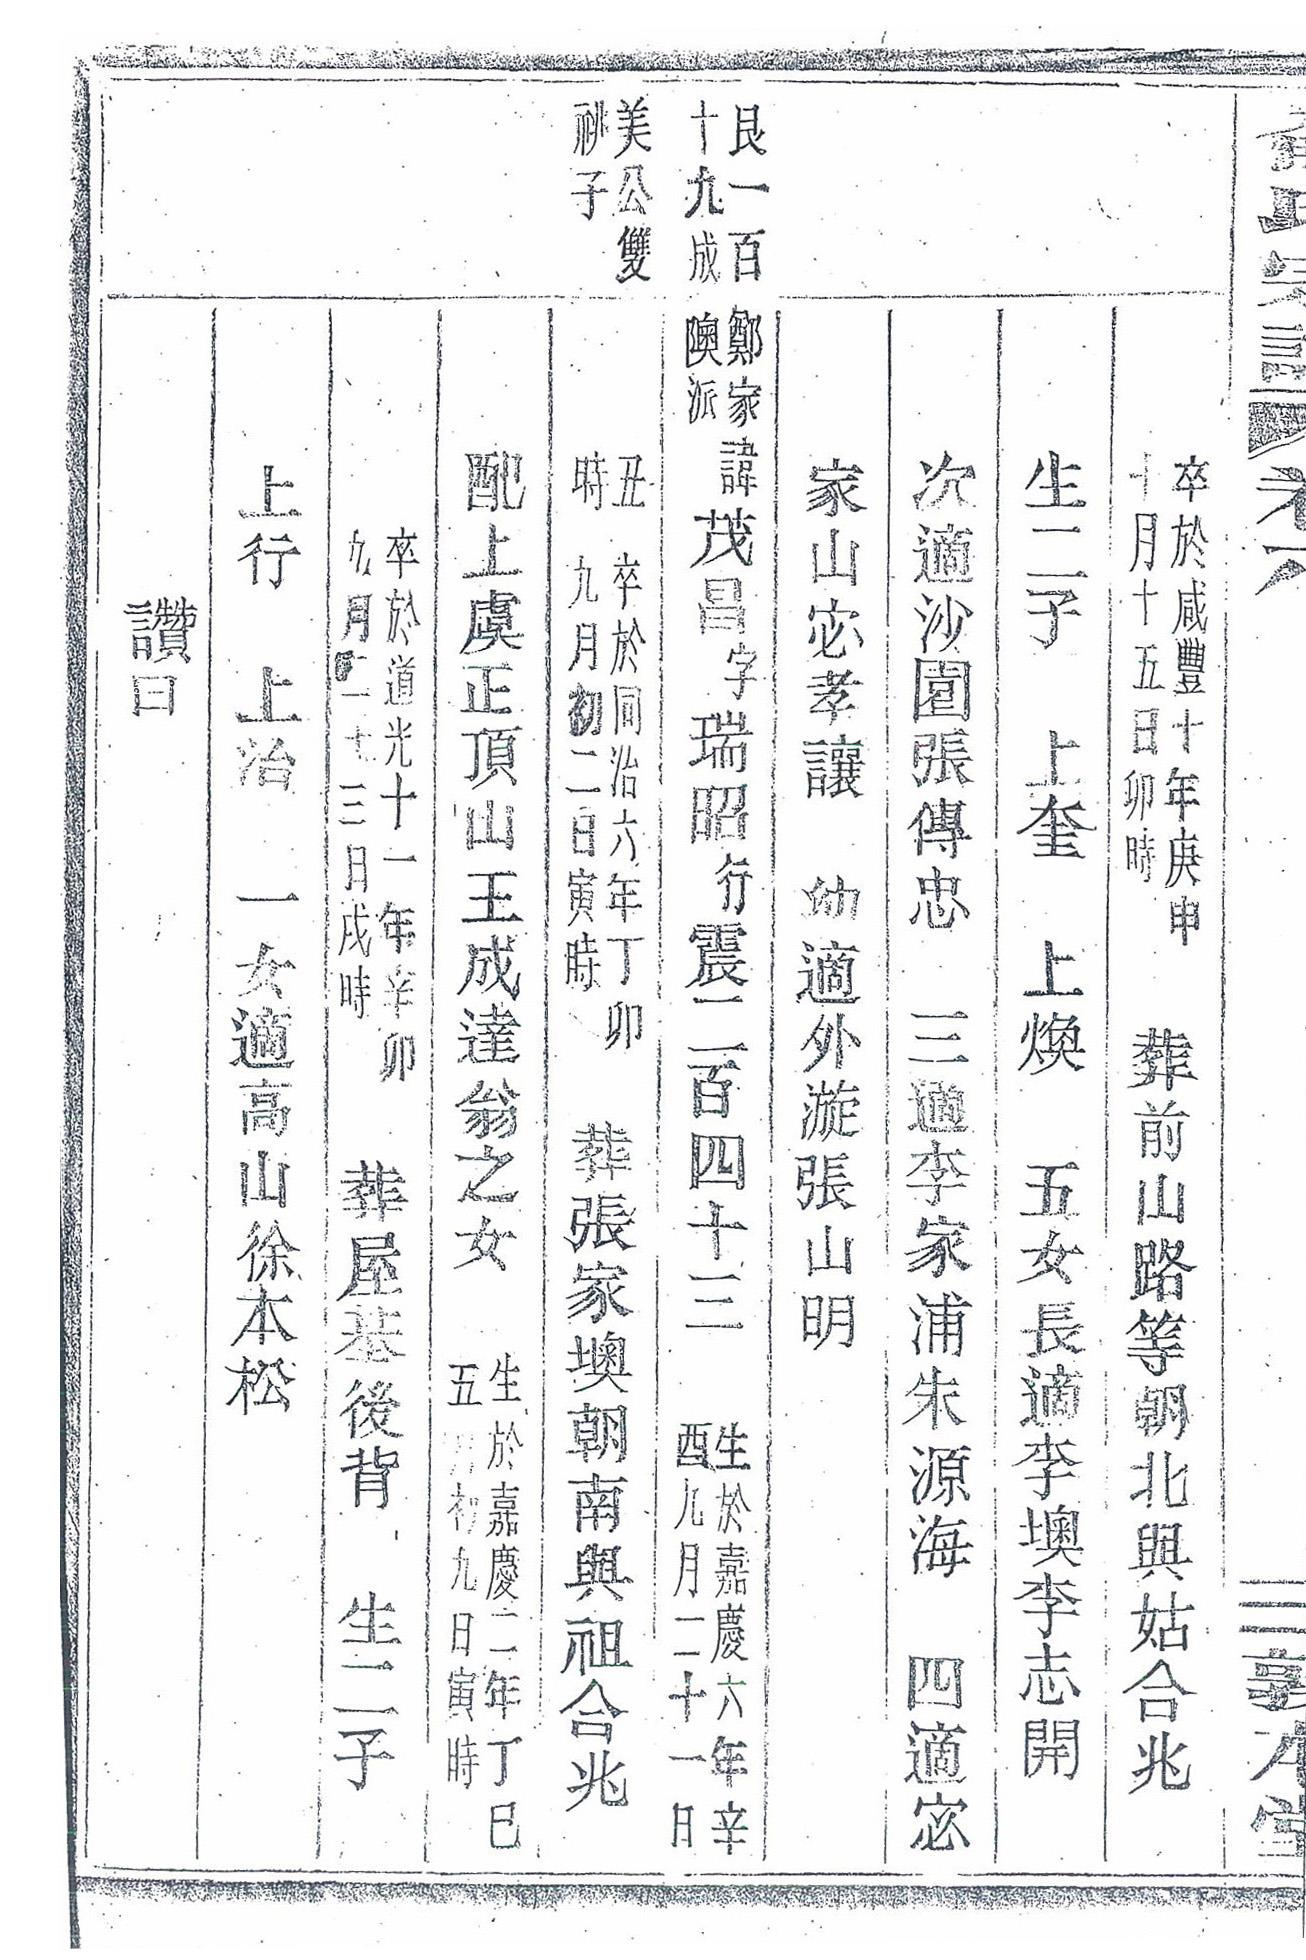 氏宗譜 卷六
敦本堂
卒於咸豐十年庚申
十月十五日卯時
葬前山路等朝北與姑合兆
生二子 上奎 上煥 五女長適李墺李志開
次適沙園張傳忠 三適李家浦朱源海 四適宓
家山宓孝讓 幼適外漩張山明
艮一百
十九成
鄭家
隩派
諱茂昌字瑞昭行震二百四十三
生於嘉慶六年辛
酉九月二十一日
美公雙
祧子
丑
時
卒於同治六年丁卯
九月初二日寅時
葬張家墺朝南與祖合兆
配上虞正頂山王成達翁之女
生於嘉慶二年丁巳
五月初九日寅時
卒於道光十一年辛卯
九月二十三日戌時
葬屋基後背 生二子
上行 上治 一女適高山徐本松
讚曰